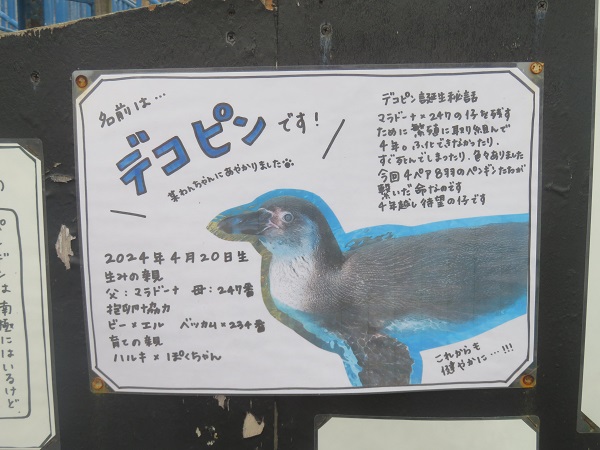 名前は…
デコピンです!
某わんちゃんにあやかりました
2024年4月20日生
生みの親
父:マラドーナ 母:247番
抱卵協力
ビー×エル ベッカム×234番
育ての親
ハルキ×ぽくちゃん
デコピン誕生秘話
マラドーナ×247の仔を残す
ために繁殖に取り組んで
4年。ふ化できなかったり、
すぐ死んでしまったり、色々ありました
今回4ペア8羽のペンギンたちが
繋いだ命なのです
4年越し待望の仔です
これからも
健やかに…!!!
ペンギンは南極にはいるけど